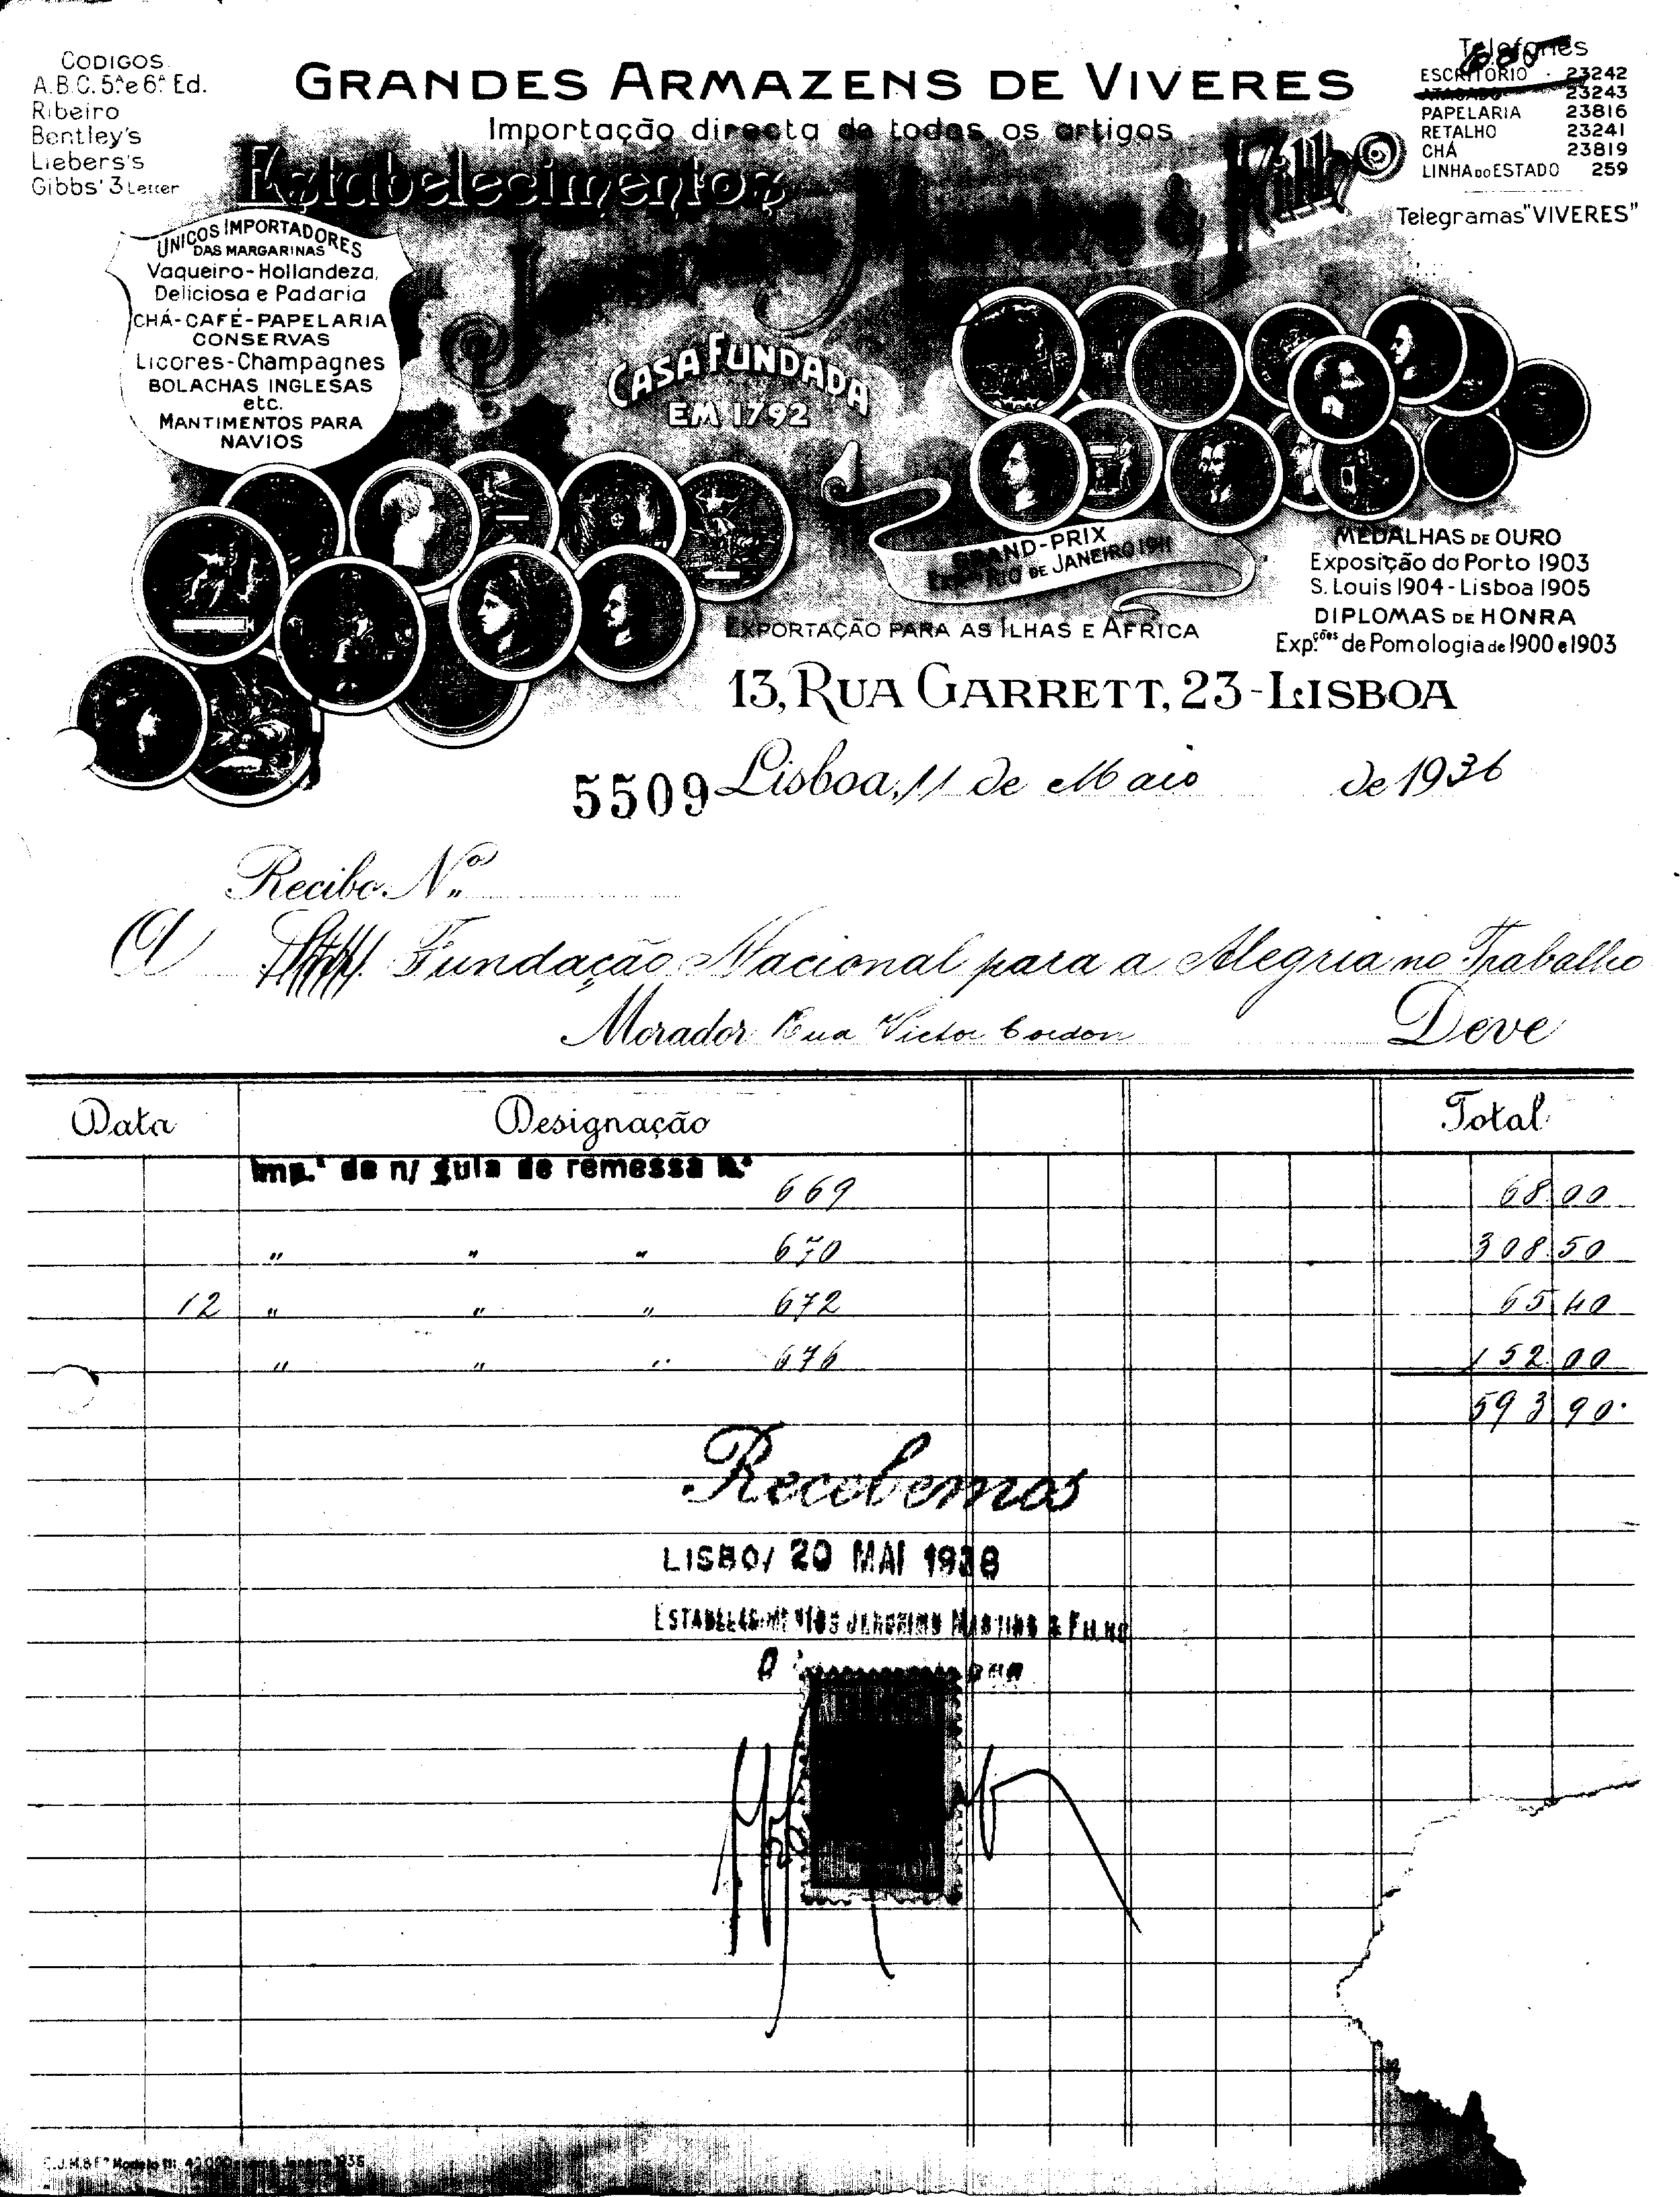 CODIGOS
A.B.C. 5ª e 6ª Ed.
Ribeiro
Bentley's
Liebers's
Gibbs' 3 Letter
GRANDES ARMAZENS DE VIVERES
Importação directa de todos os artigos
Estabelecimentos
& Filho
Telefones
ESCRITORIO 23242
23243
PAPELARIA 23816
RETALHO 23241
CHÁ 23819
LINHA DO ESTADO 259
Telegramas "VIVERES"
UNICOS IMPORTADORES
DAS MARGARINAS
Vaqueiro-Hollandeza,
Deliciosa e Padaria
CHÁ-CAFÉ-PAPELARIA
CONSERVAS
Licores-Champagnes
BOLACHAS INGLESAS
etc.
MANTIMENTOS PARA
NAVIOS
CASA FUNDADA
EM 1792
GRAND-PRIX
RIO DE JANEIRO 1911
EXPORTAÇÃO PARA AS ILHAS E AFRICA
MEDALHAS DE OURO
Exposição do Porto 1903
S. Louis 1904-Lisboa 1905
DIPLOMAS DE HONRA
Exp.ções de Pomologia de 1900 e 1903
13, RUA GARRETT, 23-LISBOA
5509 Lisboa, 11 de Maio de 1936
Recibo Nº
A Fundação Nacional para a Alegria no Trabalho
Morador Rua Victor Cordon Deve
Data Designação Total
Imp.ª de n/ guia de remessa N.º
669 68 00
" " " 670 308 50
12 " " " 672 65 40
" " " 676 152 00
593 90
Recebemos
LISBOA 20 MAI 1936
ESTABELECIMENTOS JERONIMO MARTINS & FILHO